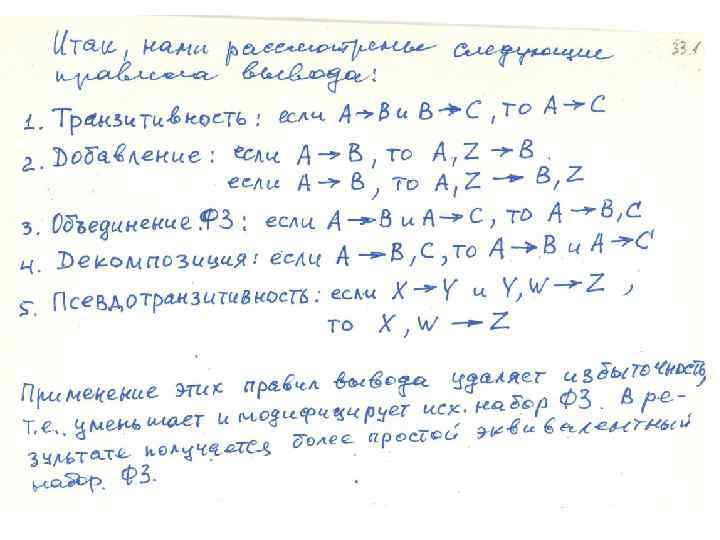 Итак, нами рассмотрены следующие 33.1
правила вывода:
1. Транзитивность: если A→B и B→C, то A→C
2. Добавление: если A→B, то A,Z→B.
если A→B, то A,Z→B,Z
3. Объединение ФЗ: если A→B и A→C, то A→B,C
4. Декомпозиция: если A→B,C, то A→B и A→C
5. Псевдотранзитивность: если X→Y и Y,W→Z,
то X,W→Z
Применение этих правил вывода удаляет избыточность,
т.е. уменьшает и модифицирует исх. набор ФЗ. В ре-
зультате получается более простой эквивалентный
набор ФЗ.